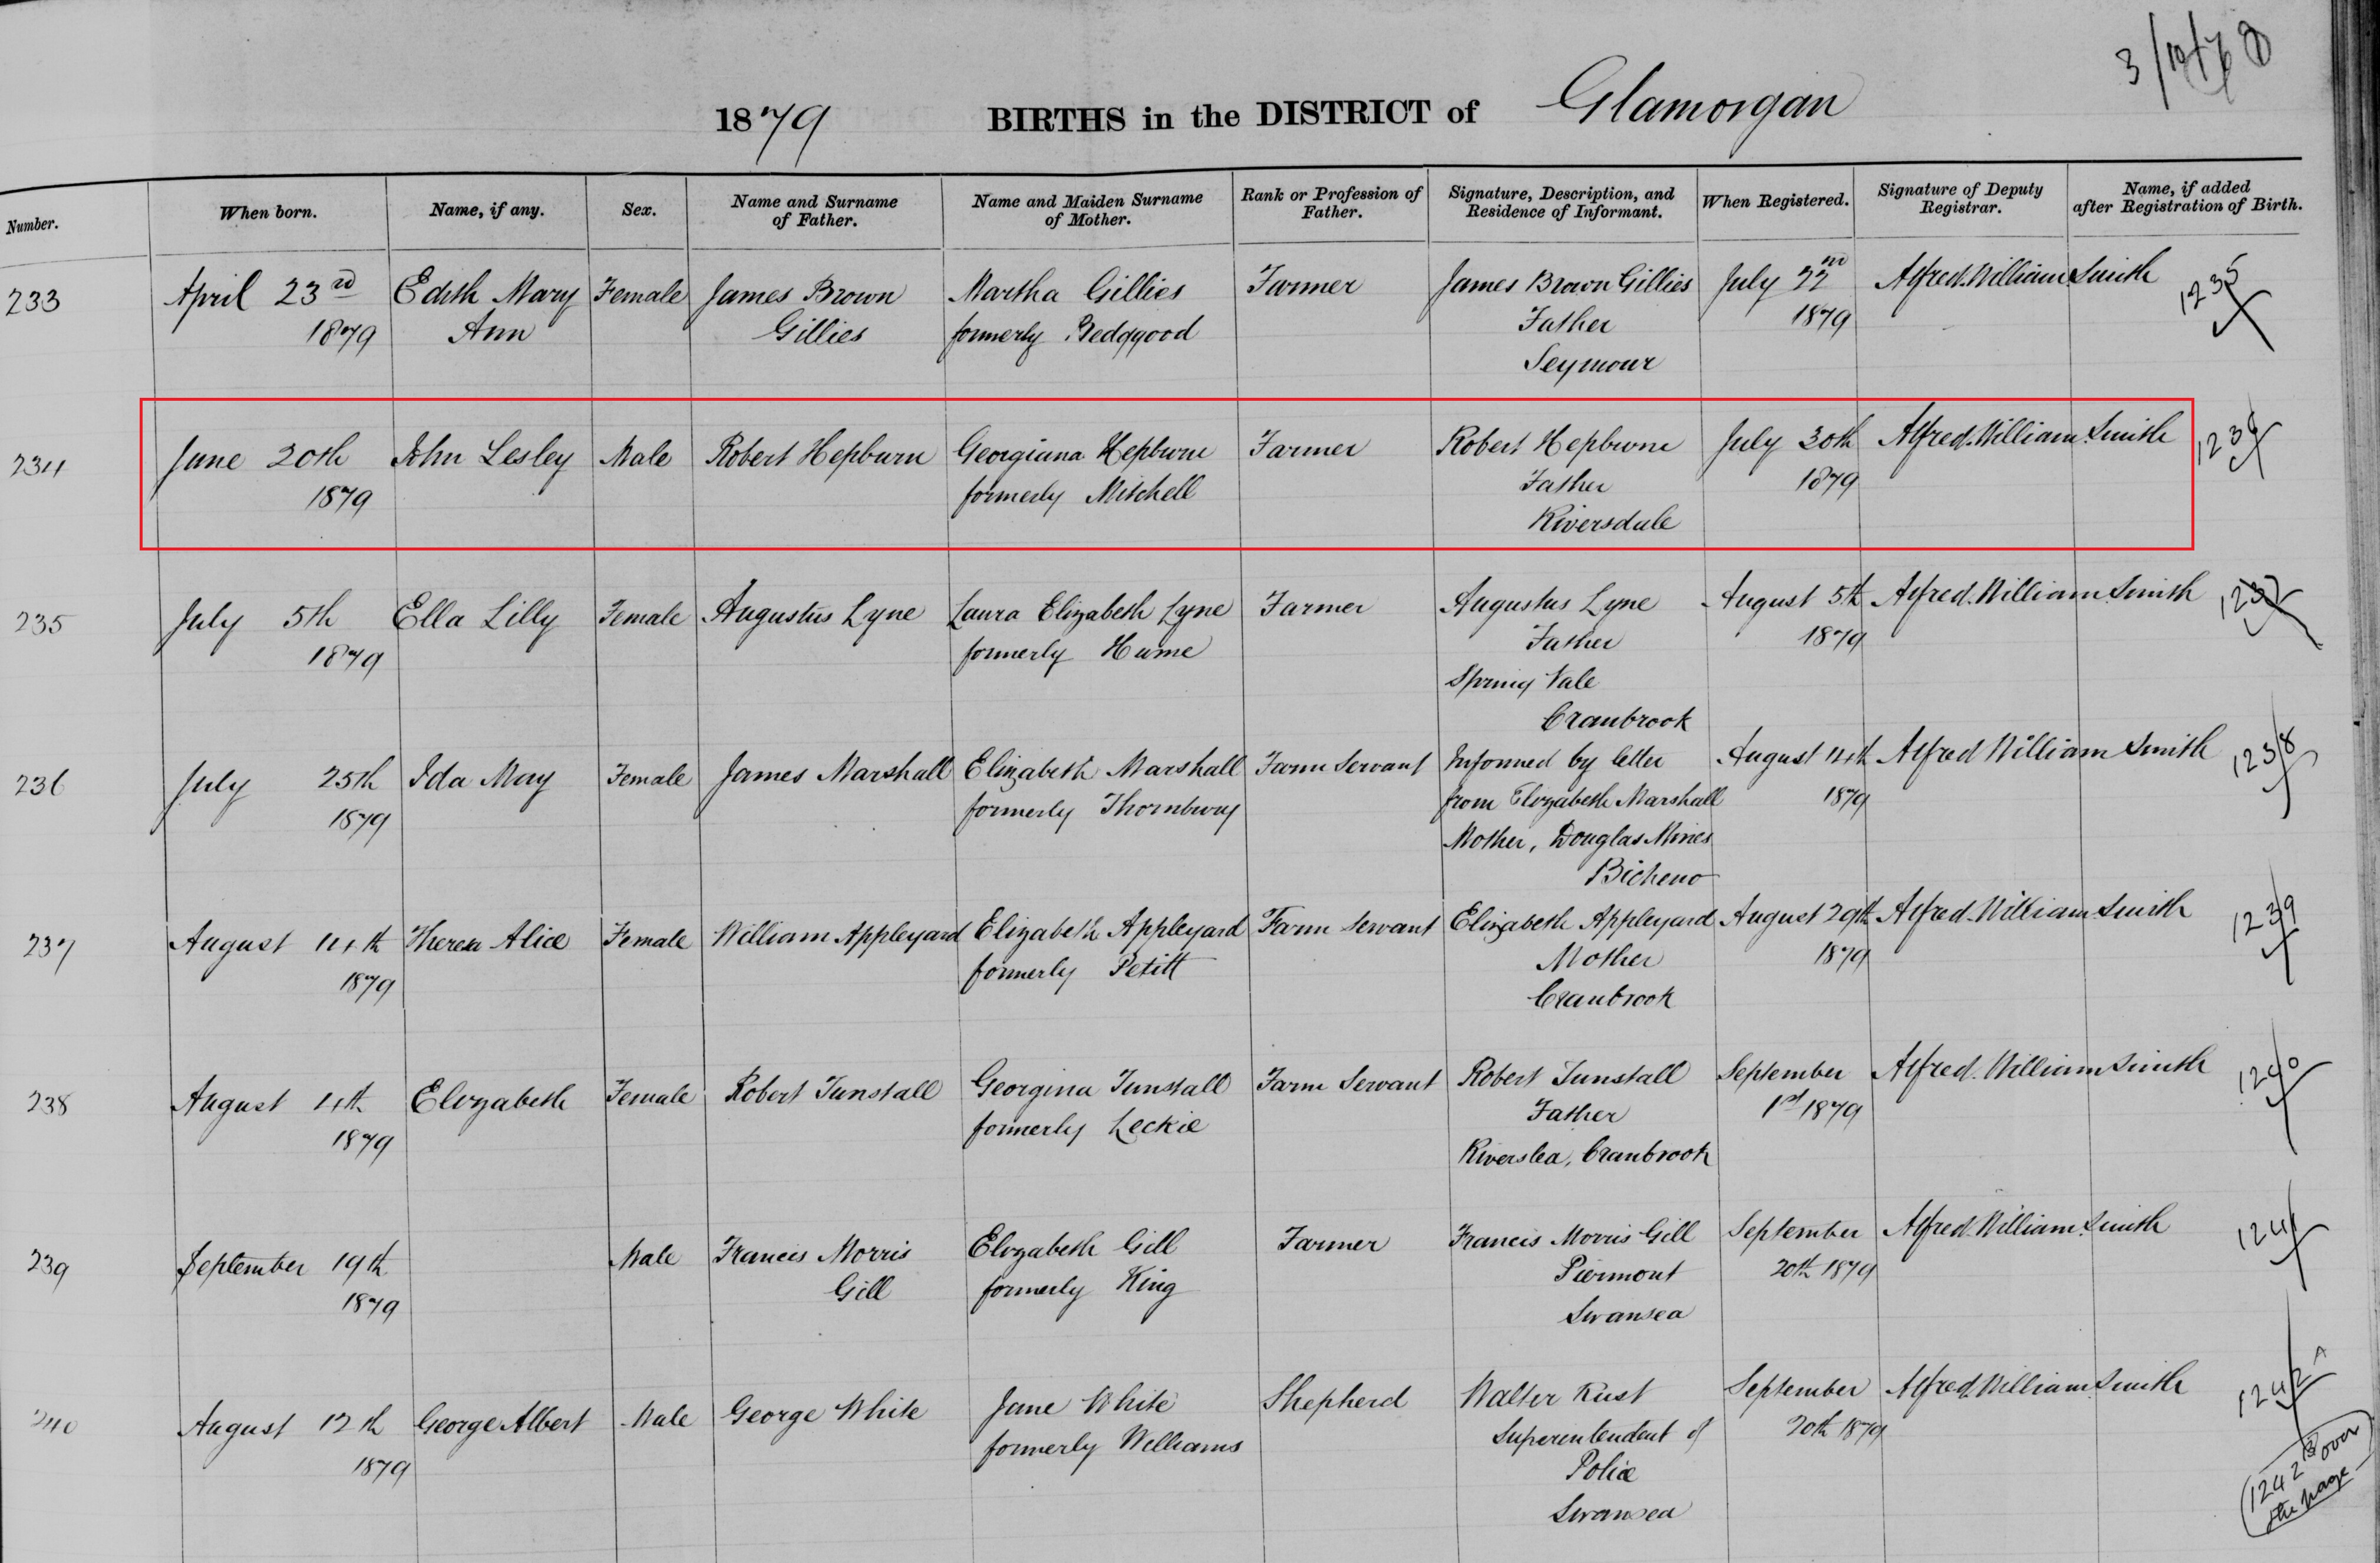 3/10/79
1879 BIRTHS in the DISTRICT of Glamorgan
Number. When born. Name, if any. Sex. Name and Surname of Father. Name and Maiden Surname of Mother. Rank or Profession of Father. Signature, Description, and Residence of Informant. When Registered. Signature of Deputy Registrar. Name, if added after Registration of Birth.
233 April 23rd Edith Mary Female James Brown Martha Gillies Farmer James Brown Gillies July 22nd Alfred William Smith 1235
1879 Ann Gillies formerly Bedggood Father 1879
Seymour
234 June 20th John Lesley Male Robert Hepburn Georgiana Hepburn Farmer Robert Hepburne July 30th Alfred William Smith 1236
1879 formerly Mitchell Father 1879
Riversdale
235 July 5th Ella Lilly Female Augustus Lyne Laura Elizabeth Lyne Farmer Augustus Lyne August 5th Alfred William Smith 1237
1879 formerly Hume Father 1879
Spring Vale
Cranbrook
236 July 25th Ida May Female James Marshall Elizabeth Marshall Farm Servant Informed by letter August 14th Alfred William Smith 1238
1879 formerly Thornbury from Elizabeth Marshall 1879
Mother, Douglas Mines
Bicheno
237 August 14th Theresa Alice Female William Appleyard Elizabeth Appleyard Farm Servant Elizabeth Appleyard August 29th Alfred William Smith 1239
1879 formerly Petitt Mother 1879
Cranbrook
238 August 4th Elizabeth Female Robert Tunstall Georgina Tunstall Farm Servant Robert Tunstall September Alfred William Smith 1240
1879 formerly Leckie Father 1st 1879
Riverslea, Cranbrook
239 September 19th Male Francis Morris Elizabeth Gill Farmer Francis Morris Gill September Alfred William Smith 1241
1879 Gill formerly King Piermont 20th 1879
Swansea
240 August 12th George Albert Male George White Jane White Shepherd Walter Rust September Alfred William Smith 1242 A
1879 formerly Williams Superentendent of 20th 1879
Police
Swansea
1242 B over
the page